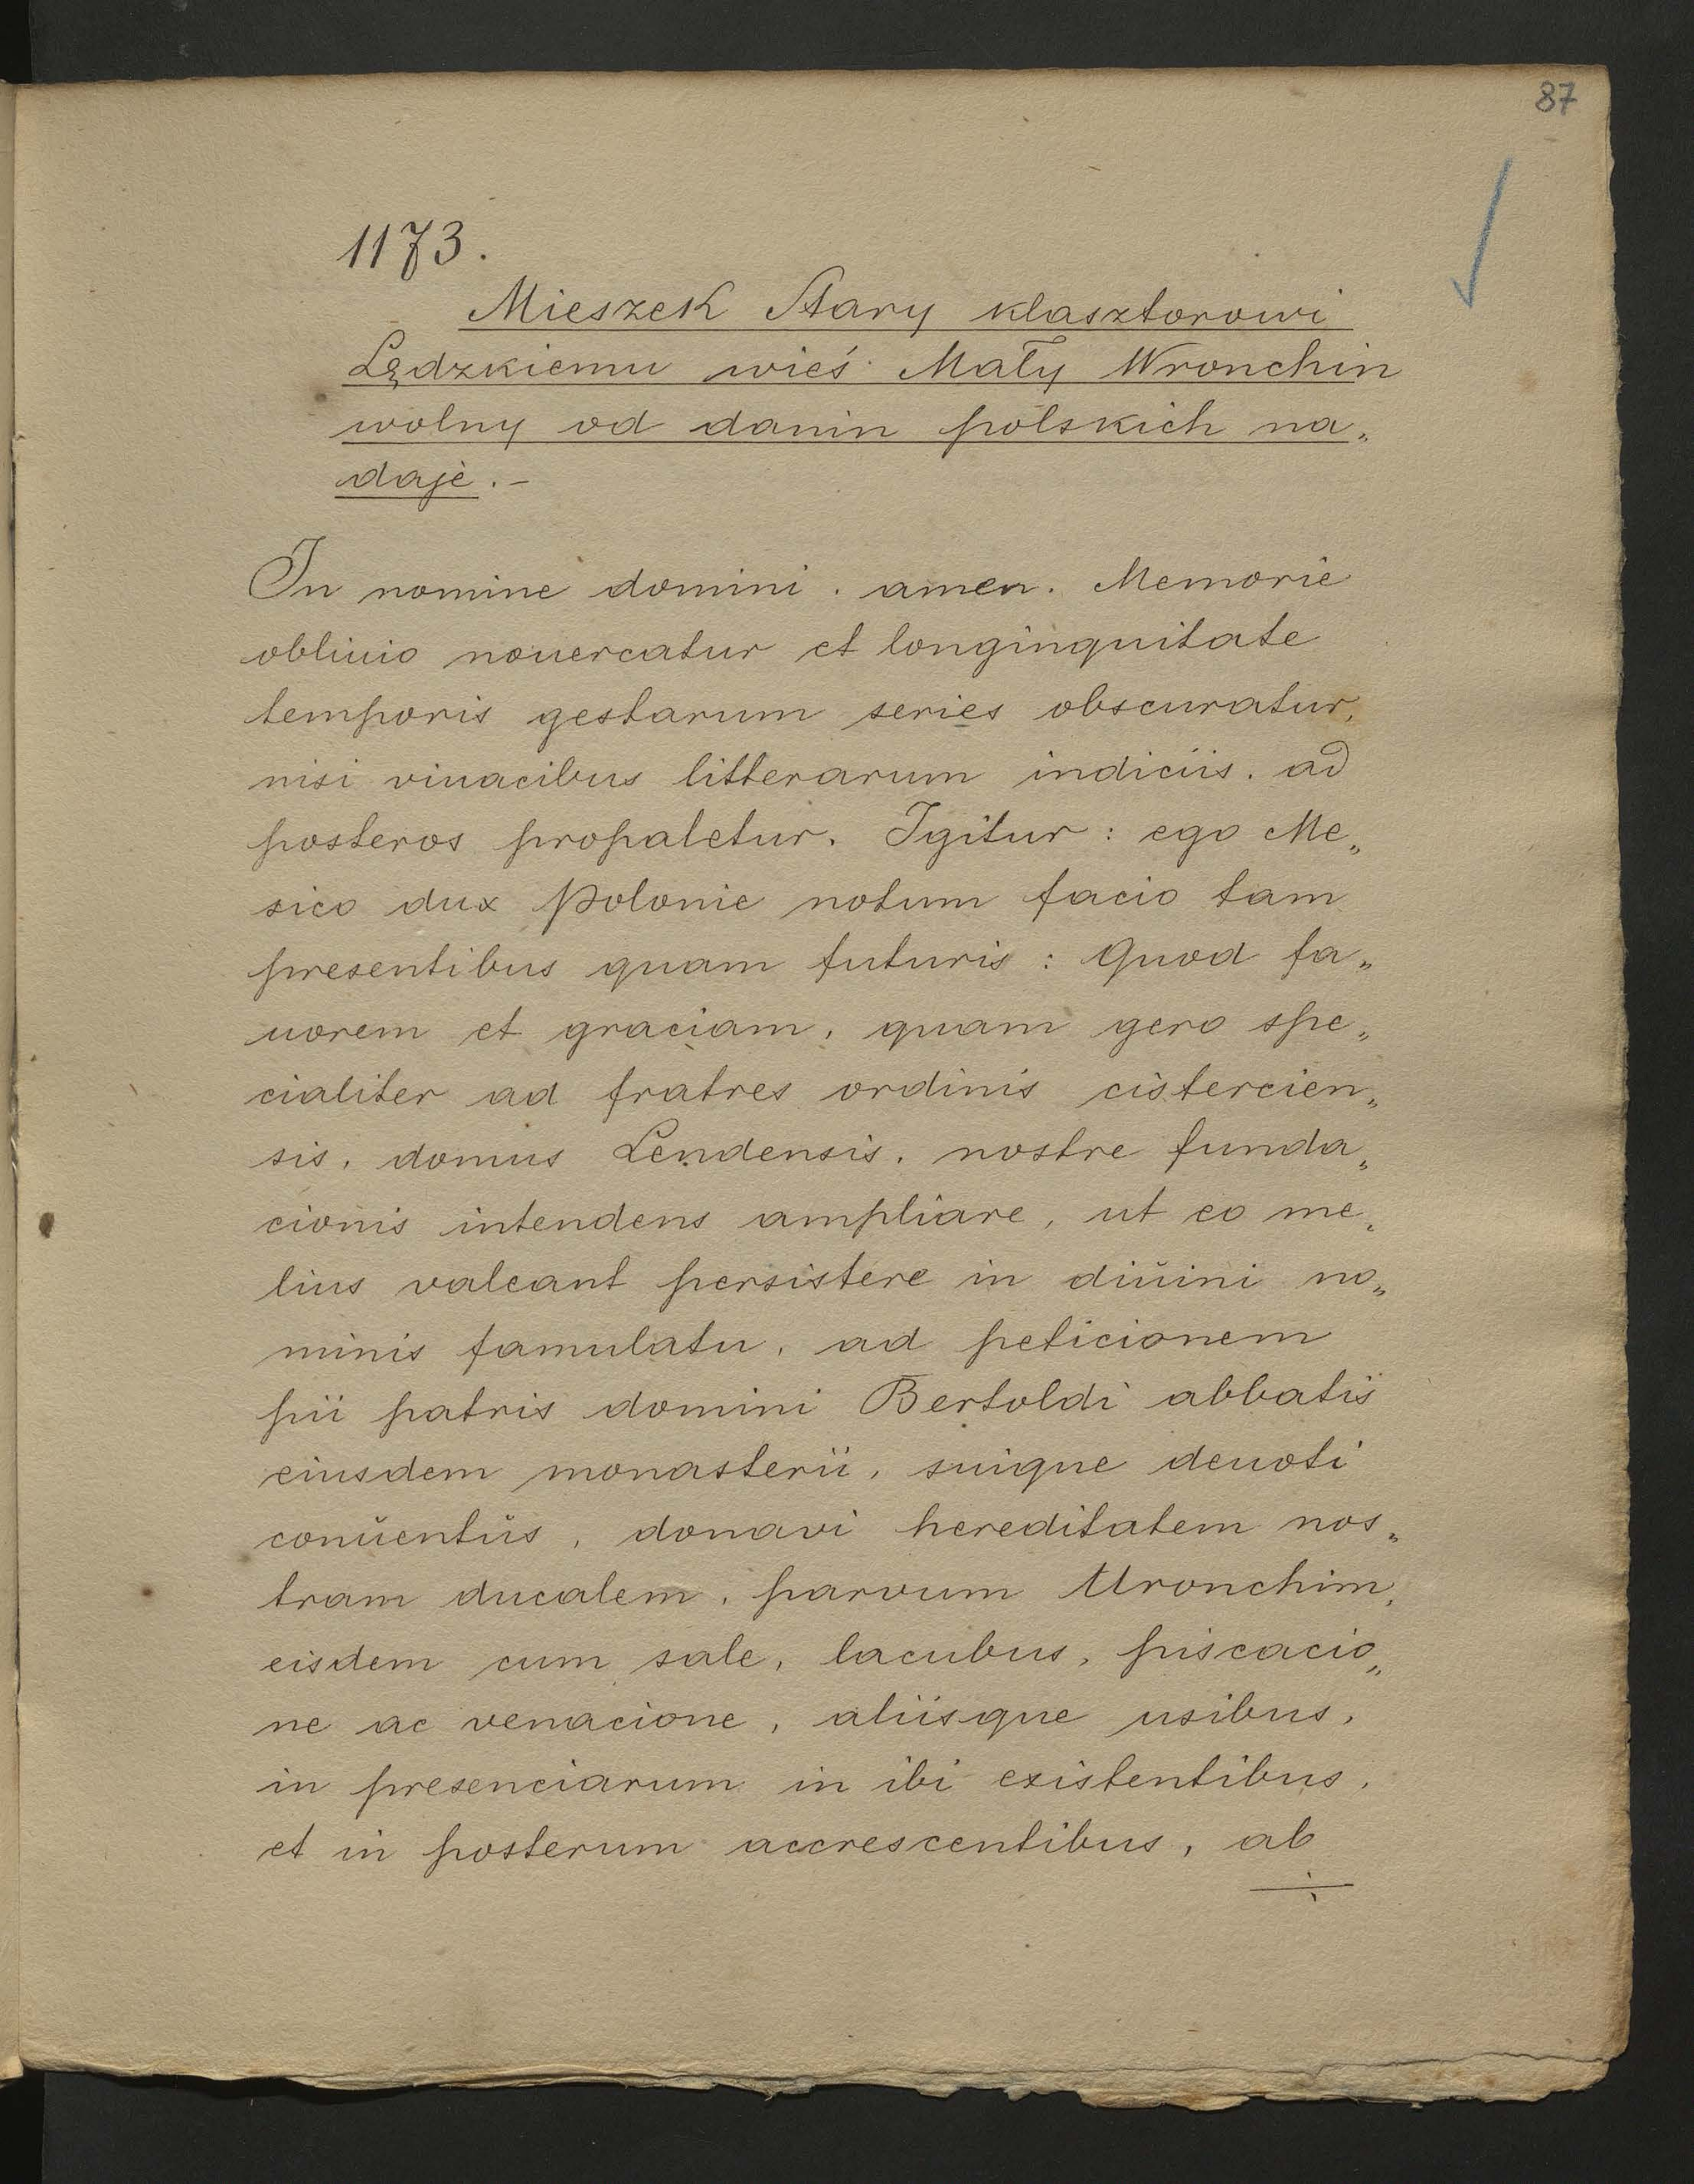 87
1173.
Mieszek Stary klasztorowi
Lędzkiemu wieś Mały Wronchin
wolny od danin polskich na„
daje.-
In nomine domini. amen. Memorie
obliuio nouercatur et longinquitate
temporis gestarum series obscuratur,
nisi viuacibus litterarum indiciis. ad
posteros propaletur. Igitur: ego Me„
sico dux Polonie notum facio tam
presentibus quam futuris: Quod fa„
uorem et graciam, quam gero spe„
cialiter ad fratres ordinis cistercien„
sis, domus Lendensis, nostre funda„
cionis intendens ampliare, ut eo me„
lius valeant persistere in diŭini no„
minis famulatu, ad peticionem
pii patris domini Bertoldi abbatis
eiusdem monasterii, suique deuoti
conŭentŭs, donavi hereditatem nos„
tram ducalem, parvum Uronchim,
eisdem cum sale, lacubus, piscacio„
ne ac venacione, aliisque usibus,
in presenciarum in ibi existentibus,
et in posterum accrescentibus, ab